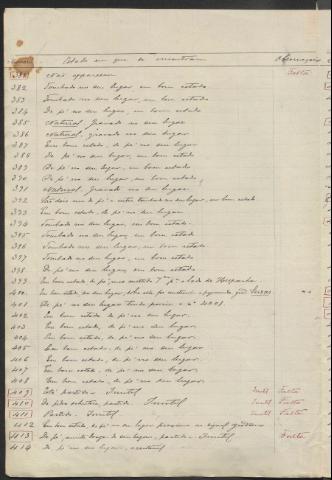 Estado em que se encontram Observações
381 Não appareceu Falta
382 Tombado no seu lugar, em bom estado
383 Tombado no seu lugar, em bom estado
384 De pé no seu lugar, em bom estado
385 Natural, gravado no seu lugar
386 Natural, gravado no seu lugar
387 Em bom estado, de pé no seu lugar
388 De pé no seu lugar, em bom estado
389 De pé no seu lugar, em bom estado
390 De pé no seu lugar, em bom estado
391 Natural, gravado no seu lugar
392 de pé e outro tombado no seu lugar, em bom estado
393 Em bom estado, de pé no seu lugar
394 Tombado no seu lugar, em bom estado
395 Tombado no seu lugar, em bom estado
396 Tombado no seu lugar, em bom estado
397 Tombado no seu lugar, em bom estado
398 De pé no seu lugar, em bom estado
399 Em bom estado, de pé, mas mettido 7m pª o lado de Hespanha
400 Em bom estado, no seu lugar,
401 De pé no seu lugar
402 Em bom estado de pé no seu lugar
403 Em bom estado, de pé no seu lugar
404 Em bom estado, de pé no seu lugar
405 Em bom estado, de pé no seu lugar
406 Em bom estado, de pé no seu lugar
407 Em bom estado, de pé no seu lugar
408 Em bom estado, de pé no seu lugar
409 Está partido. Inutil Inutil Falta
410 De pedra partido. Inutil Inutil Falta
411 Partido. Inutil Inutil Falta
412 Em bom estado, de pé no seu lugar
413 De pé, muito longe do seu lugar, partido. Inutil Falta
414 De pé no seu lugar,